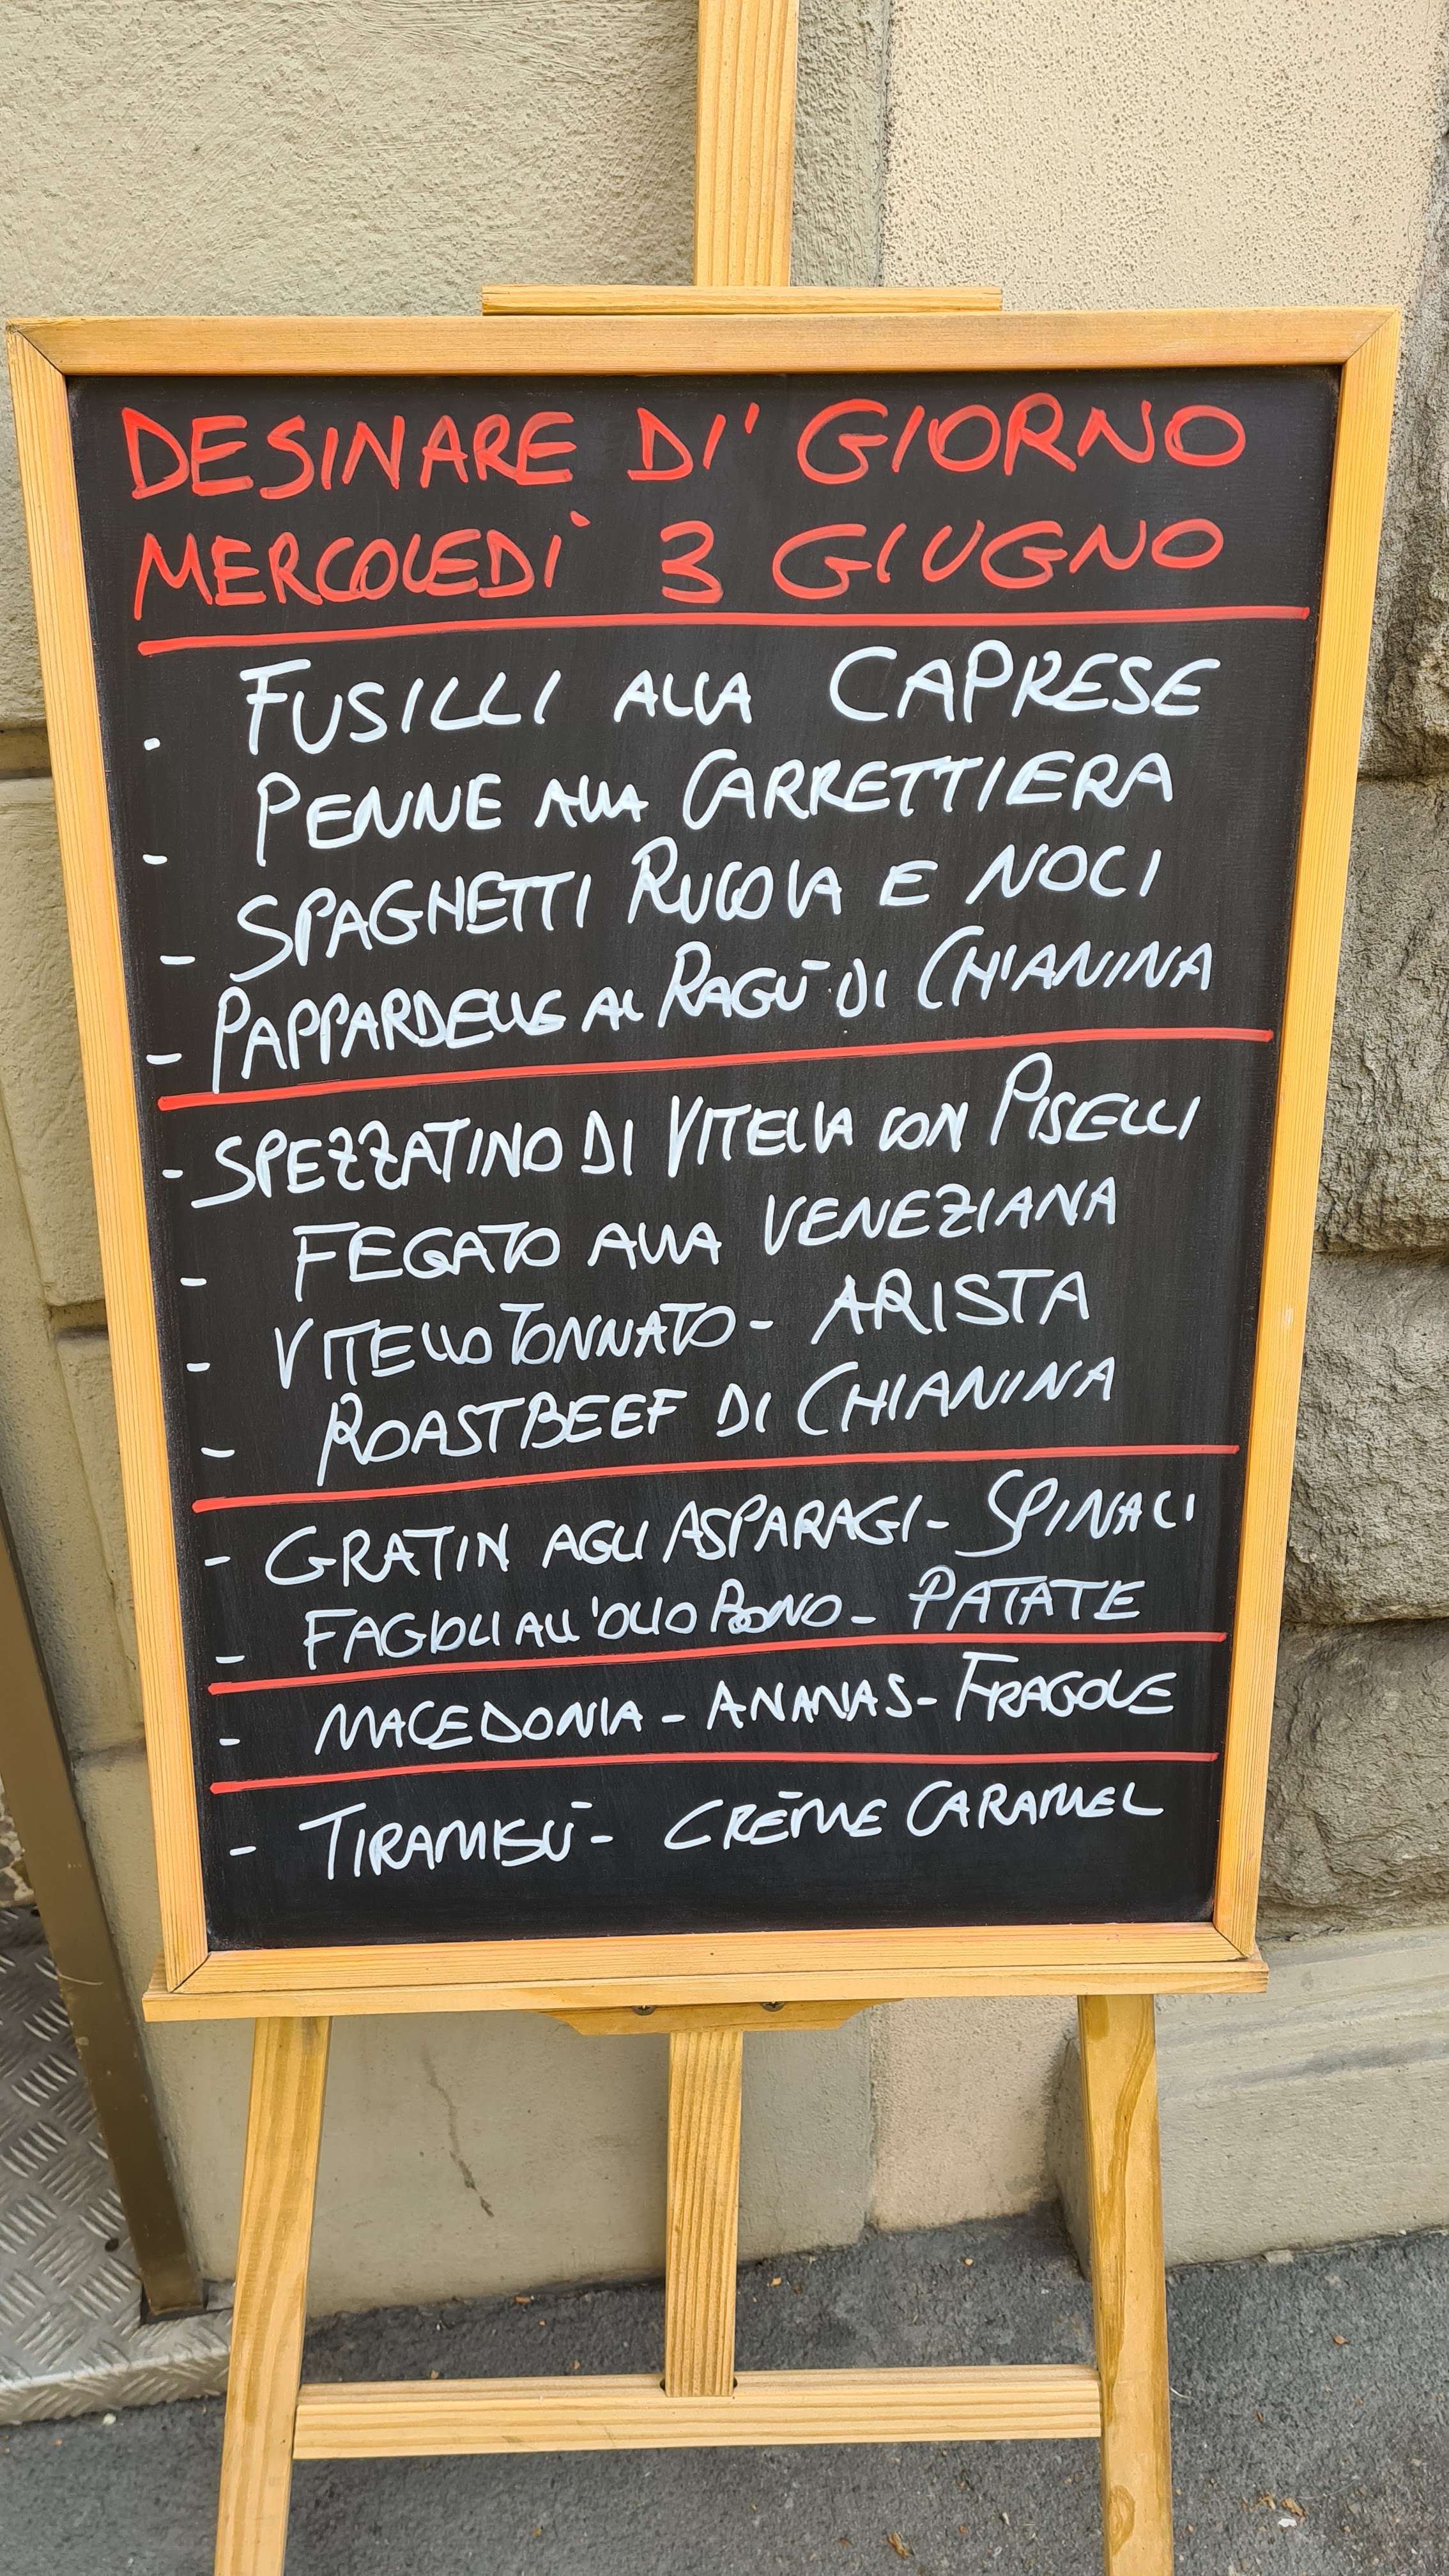 DESINARE DI' GIORNO
MERCOLEDÌ 3 GIUGNO
- FUSILLI ALLA CAPRESE
- PENNE ALLA CARRETTIERA
- SPAGHETTI RUCOLA E NOCI
- PAPPARDELLE AL RAGÙ DI CHIANINA
- SPEZZATINO DI VITELLA CON PISELLI
- FEGATO ALLA VENEZIANA
- VITELLO TONNATO - ARISTA
- ROASTBEEF DI CHIANINA
- GRATIN AGLI ASPARAGI - SPINACI
- FAGIOLI ALL'OLIO BONO - PATATE
- MACEDONIA - ANANAS - FRAGOLE
- TIRAMISÙ - CRÈME CARAMEL